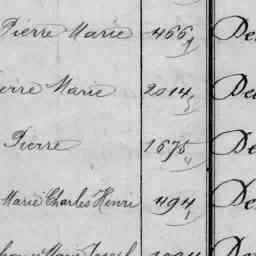 Pierre Marie 466 De
erre Marie 2014 De
Pierre 1675 De
Marie Charles Henri 494 De